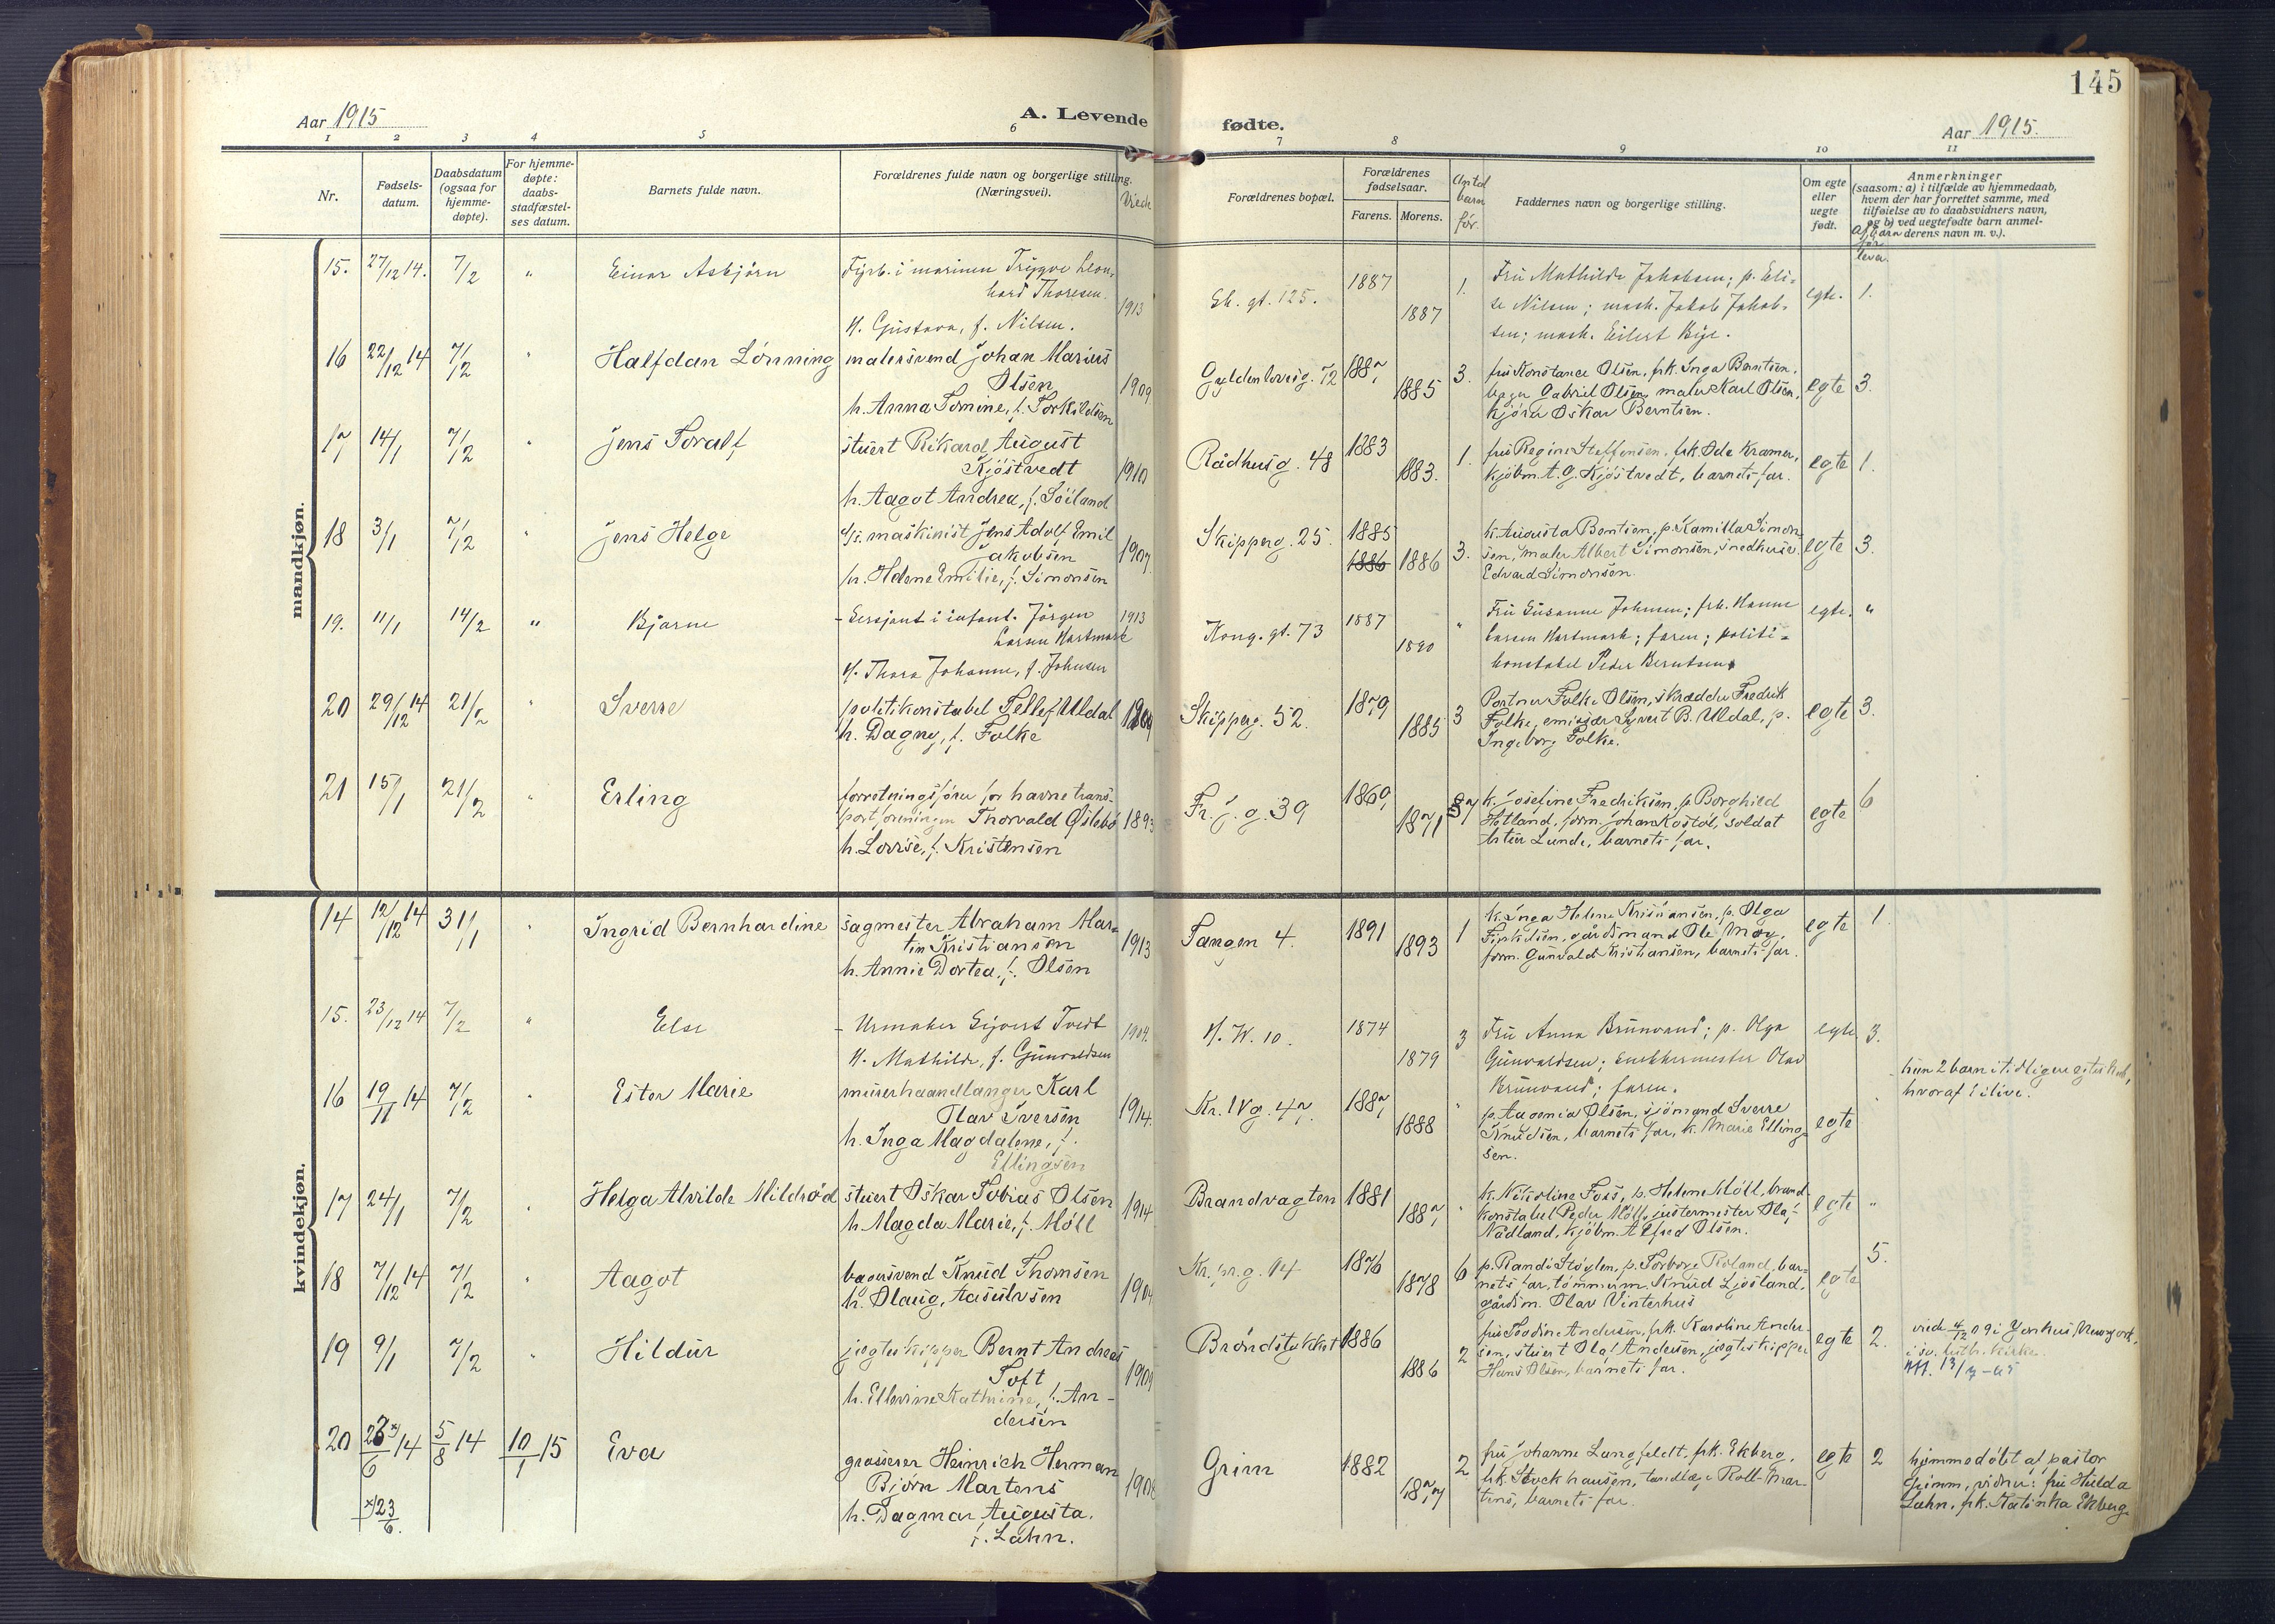 145
Aar 1915
A. Levende
fødte.
Aar 1915.
1 2 3 4 5 6 7 8 9 10 11
Nr.
Fødsels-
datum.
Daabsdatum
(ogsaa for
hjemme-
døpte).
For hjemme-
døpte:
daabs-
stadfæstel-
ses datum.
Barnets fulde navn.
Forældrenes fulde navn og borgerlige stilling.
(Næringsvei).
Viede
Forældrenes bopæl.
Forældrenes
fødselsaar.
Farens. Morens.
Antal
barn
før.
Faddernes navn og borgerlige stilling.
Om egte
eller
uegte
født.
Anmerkninger
(saasom: a) i tilfælde av hjemmedaab,
hvem der har forrettet samme, med
tilføielse av to daabsvidners navn,
og b) ved uegtefødte barn anmel-
derens navn m. v.).
Af barn
før
lever.
mandkjøn.
15. 27/12 14. 7/2 " Einar Asbjørn
Fyrb. i marinen Trygve Leon-
hard Thoresen.
H. Gustava, f. Nilsen.
1913
Eb. gt. 125.
1887
1887
1.
Fru Mathilde Jakobsen; p. Eli-
se Nilsen; mask. Jakob Jakob-
sen; mask. Eilert Bye.
egte. 1.
16 22/12 14 7/2 " Halfdan Lønning
malersvend Johan Marius
Olsen
h. Anna Tomine, f. Torkildsen
1909.
Gyldenløvesg. 72
1887
1885
3.
fru Konstance Olsen, frk. Inga Berntsen,
bager Gabriel Olsen, maler Karl Olsen,
kjører Oskar Berntsen.
egte 3.
17 14/1 7/2 " Jens Toralf
stuert Rikard August
Kjøstvedt
h. Aagot Andrea, f. Søiland
1910
Rådhusg. 48
1883
1883.
1.
fru Regine Steffensen, frk. Oda Kramer,
kjøbm. A. G. Kjøstvedt, barnets far.
egte 1.
18 3/1 7/2 " Jens Helge
d/s. maskinist Jens Adolf Emil
Jakobsen
h. Helene Emilie, f. Simonsen
1907.
Skipperg. 25.
1885
1886 1886
3.
k. Augusta Berntsen, p. Kamilla Simon-
sen, maler Albert Simonsen,
Edvard Simonsen.
egte 3.
19. 11/1 14/2 " Bjarne
- Sersjant i infant. Jørgen
Larsen Hartmark
H. Thora Johanne, f. Johnsen
1913
Kong. gt. 73
1887
1890
"
Fru Susanne Johnsen; frk. Hanne
Larsen Hartmark; faren; politi-
konstabel Peder Berntsen.
egte. "
20 29/12 14 21/2 " Sverre
politikonstabel Tellef Uldal
h. Dagny, f. Folke
1909
Skipperg. 52.
1879
1885
3
Portner Folke Olsen, skrædder Fredrik
Folke, emissær Syvert B. Uldal, p.
Ingeborg Folke.
egte 3.
21 15/1 21/2 " Erling
forretningsfører for havnetrans-
portforeningen Thorvald Øslebø
h. Lovise, f. Kristensen
1893
Fr. j. g. 39
1869
1871
7
k. Josefine Fredriksen, p. Borghild
Hetland, form. Johan Kostøl, soldat
Lunde, barnets far.
egte 6
kvindekjøn.
14 12/12 14 31/1 " Ingrid Bernhardine
sagmester Abraham Mar-
tin Kristiansen
h. Annie Dortea, f. Olsen
1913
Tangen 4.
1891
1893
1
k. Inga Helene Kristiansen, p. Olga
gårdsmand Ole Moy,
form. Gunvald Kristiansen, barnets far.
egte 1.
15. 23/12 14 7/2 " Else
- Urmaker Sigvert Tveit
H. Mathilde, f. Gunvaldsen
1904.
H. W. 10.
1874
1879
3
Fru Anna Brunvand; p. Olga
Gunvaldsen; Snekkermester Olav
Brunvand; faren.
egte 3.
16 19/11 14 7/2 " Ester Marie
murerhaandlanger Karl
Olav Iversen
h. Inga Magdalene, f.
Ellingsen
1914.
Kr. IV g. 47.
1887
1888
"
p. Olsen, sjømand Sverre
Knudsen, barnets far, k. Marie Elling-
sen.
egte "
hun 2 barn i tidligere egteskab,
hvoraf 1 ilive.
17 24/1 7/2 " Helga Alvilde Mildrød
stuert Oskar Tobias Olsen
h. Magda Marie, f. Møll
1914
Brandvagten
1881
1887
"
k. Nikoline Foss, p. Helene Møll, brand-
konstabel Peder Møll, justermester Olaf
Nådland, kjøbm. Alfred Olsen.
egte "
18 7/12 14 7/2 " Aagot
bagersvend Knud Thomsen
h. Olaug, Aasulvsen
1904
Kr. pr. g. 94
1876
1878
6
p. Randi Støylen, p. Torborg Roland, bar-
nets far, tømmerm. Knud Ljosland,
gårdsm. Olav Vinterhus
egte 5.
19 9/1 7/2 " Hildur
jagteskipper Bernt Andreas
Toft
h. Ellevine Kathrine, f. An-
dersen
1909
Brøndstykket
1886
1886
2
fru Andersen, frk. Karoline Ander-
sen, stuert Olaf Andersen, jagteskipper
Hans Olsen, barnets far.
egte 2.
viede 4/12 09 i Yonkers, Newyork,
i sv. luth. kirke.
20 23/6 14 5/8 14 10/1 15 Eva
x) 23/6.
grosserer Heinrich Herman
Bjørn Martens
h. Dagmar Augusta,
f. Lahn.
1908
Grim
1882
1877
2
fru Johanne Langfeldt, frk. Ekberg,
frk. Stockhausen, tandlæge Rolf Mar-
tens, barnets far.
egte 2
hjemmedøbt af pastor
Grimm, vidner: fru Hulda
Lahn, frk. Katinka Ekberg